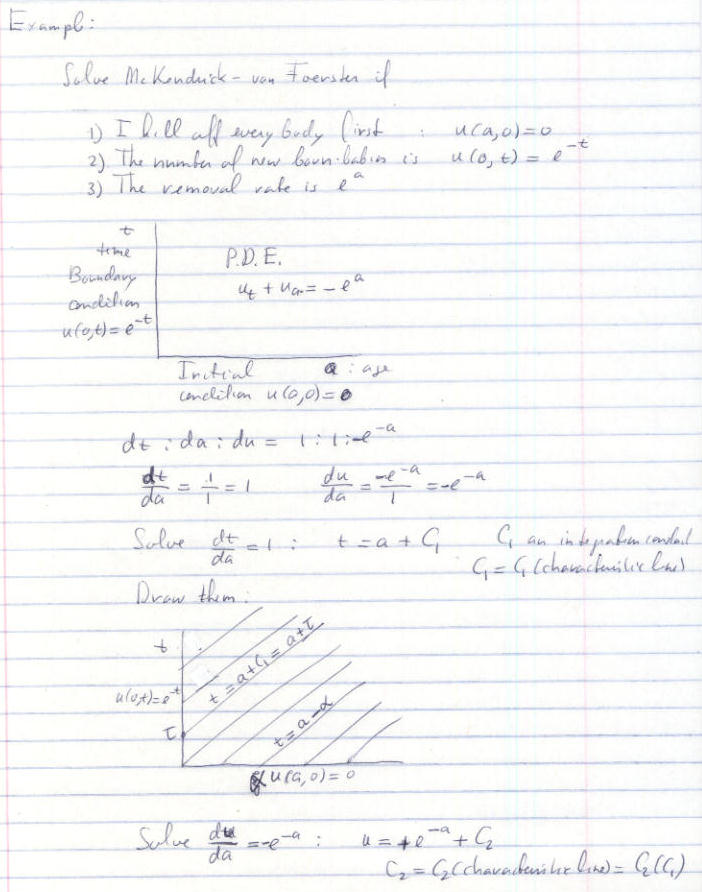 Exampl:
Solve McKendrick - von Foerster if
1) I kill off every body first : u(a,0)=0
2) The number of new born babies is u(0,t) = e^{-t}
3) The removal rate is e^a
t
time
Boundary
condition
u(0,t)=e^{-t}
P.D.E.
u_t + u_a = -e^a
Initial
condition u(a,0)=0
a : age
dt : da : du = 1 : 1 : -e^{-a}
dt/da = 1/1 = 1 du/da = -e^{-a}/1 = -e^{-a}
Solve dt/da = 1 : t = a + C_1 C_1 an integration constant
C_1 = C_1(characteristic line)
Draw them:
t
u(0,t)=e^{-t}
τ
t = a+C_1 = a+τ
t = a-α
α u(a,0) = 0
Solve du/da = -e^{-a} : u = +e^{-a} + C_2
C_2 = C_2(characteristic line) = C_2(C_1)